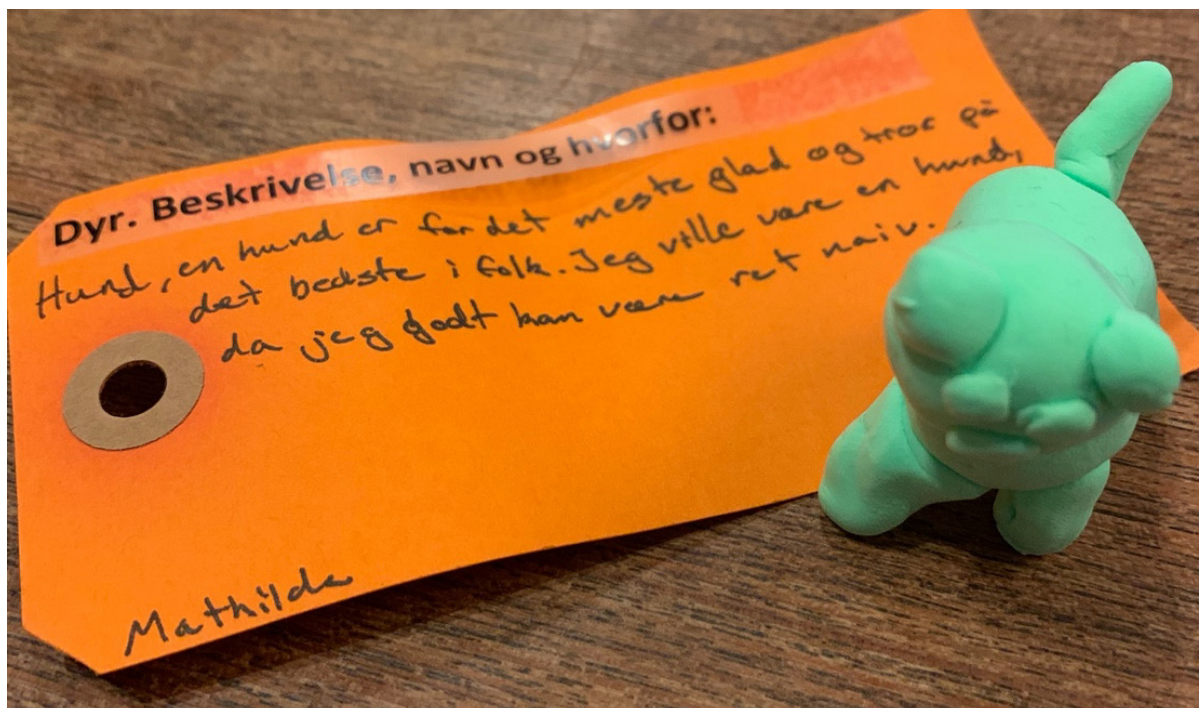 Dyr. Beskrivelse, navn og hvorfor:
Hund, en hund er for det meste glad og tror på
det bedste i folk. Jeg ville være en hund,
da jeg godt kan være ret naiv.
Mathilde